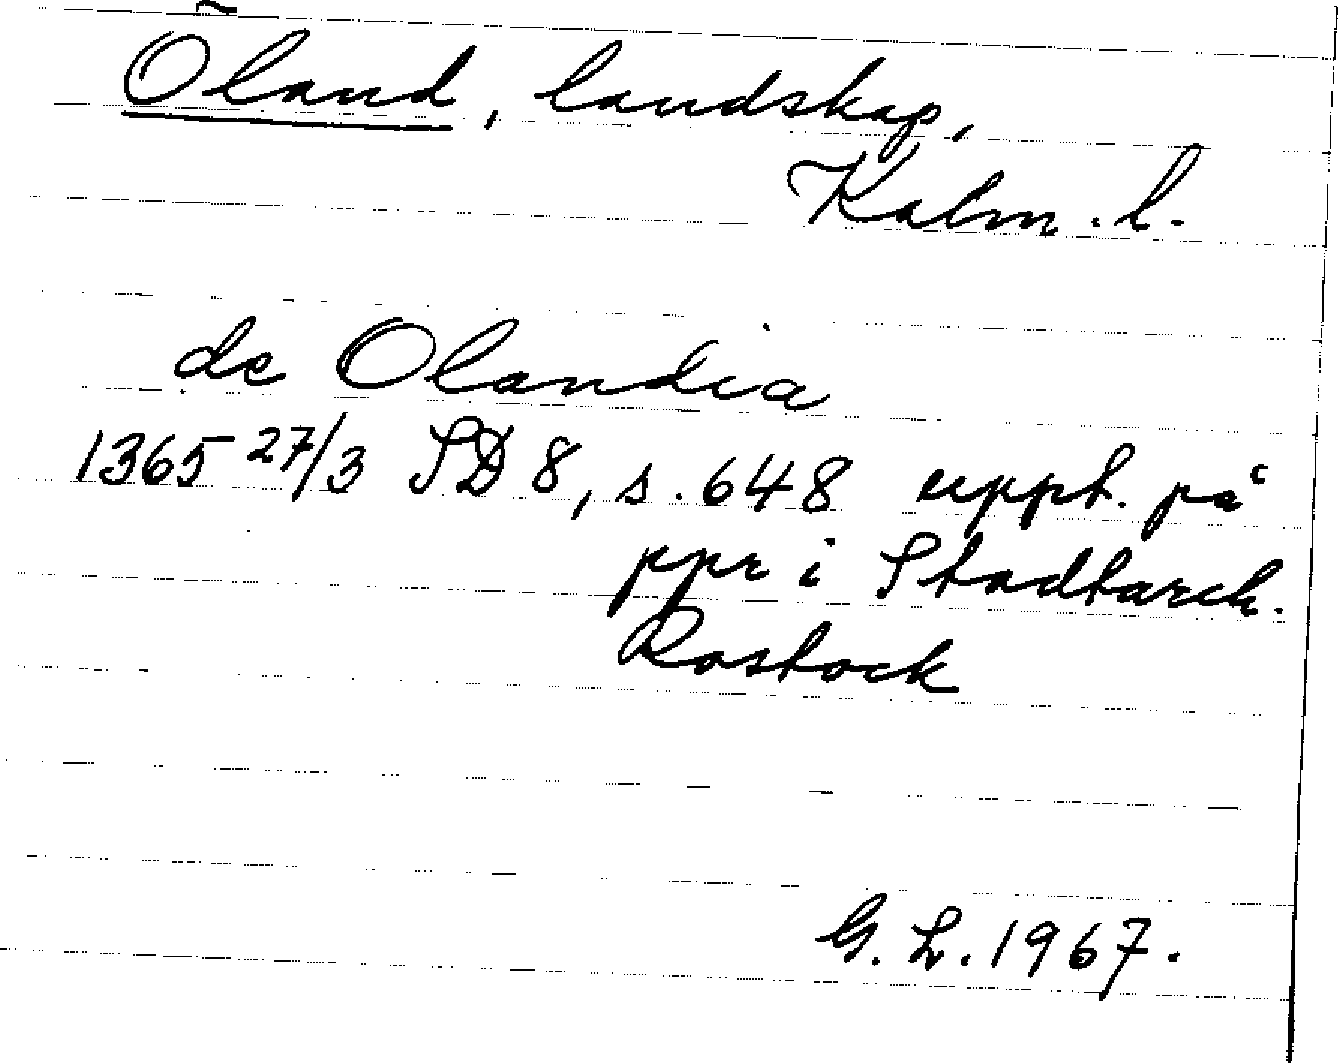 Öland, landskap,
Kalm. l.
de Olandia
1365 27/3 SD 8, s. 648 uppt. på
ppr i Stadtarch.
Rostock
G. L. 1967.